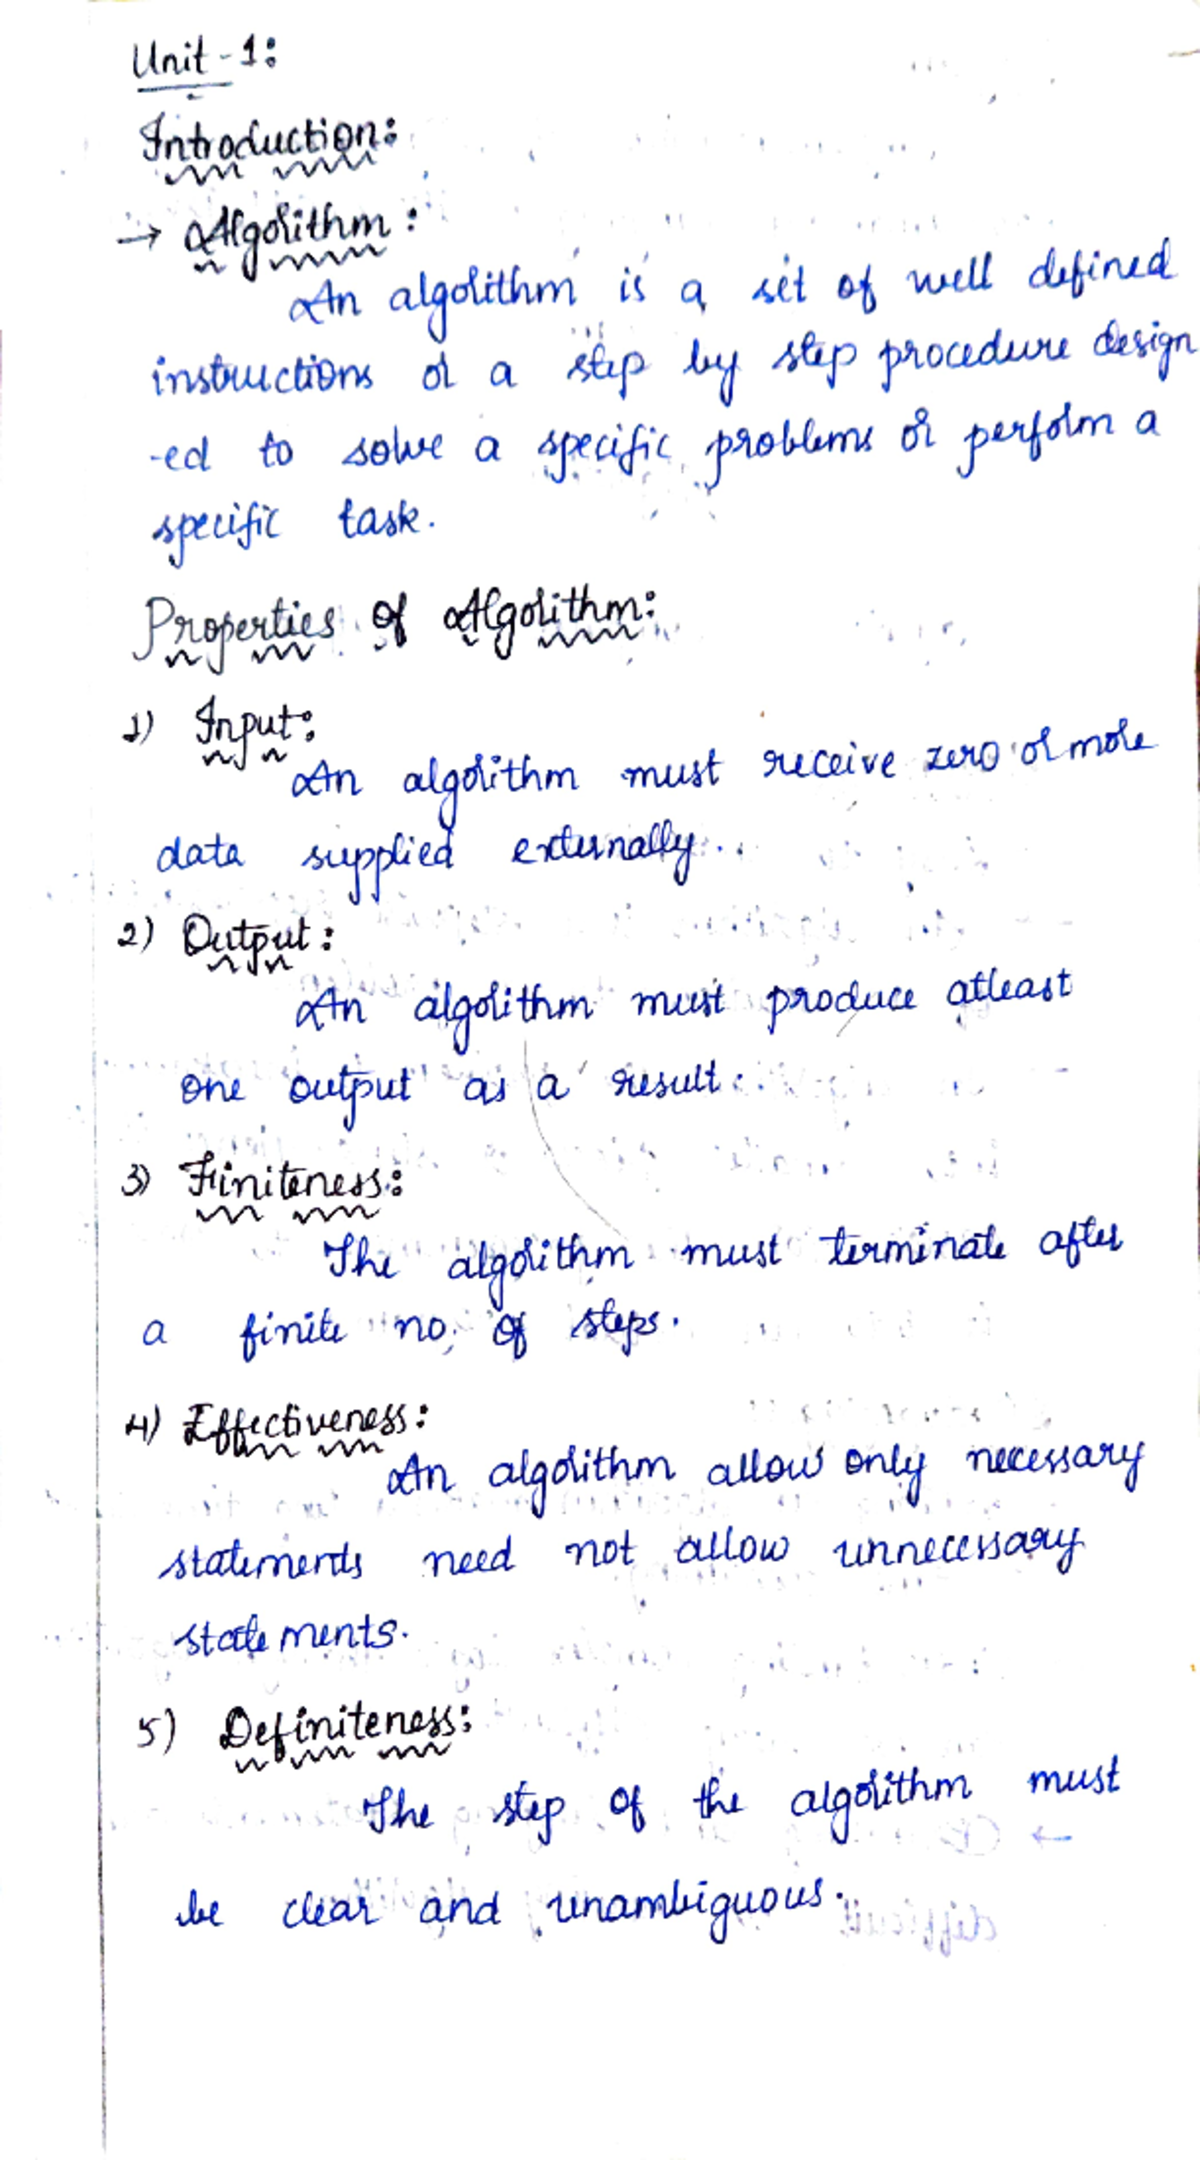 Unit-1:
Introduction:
→ Algorithm:
An algorithm is a set of well defined
instructions or a step by step procedure design
-ed to solve a specific problems or perform a
specific task.
Properties of Algorithm:
1) Input:
An algorithm must receive zero or more
data supplied externally.
2) Output:
An algorithm must produce atleast
one output as a result.
3) Finiteness:
The algorithm must terminate after
a finite no. of steps.
4) Effectiveness:
An algorithm allow only necessary
statements need not allow unnecessary
statements.
5) Definiteness:
The step of the algorithm must
be clear and unambiguous.